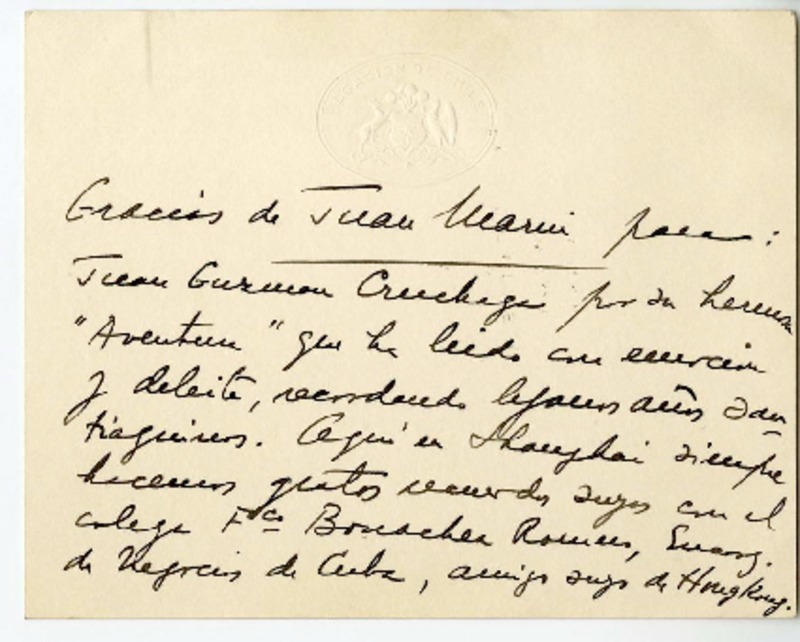 LEGACION DE CHILE
Gracias de Juan Marin para:
Juan Guzman Cruchaga por su hermosa
"Aventura" que ha leido con emocion
y deleite, recordando lejanos años san-
tiaguinos. Aqui en Shanghai siempre
hacemos gratos recuerdos suyos con el
colega Fco Bonachea Romero, Encarg.
de Negocios de Cuba, amigo suyo de HongKong.